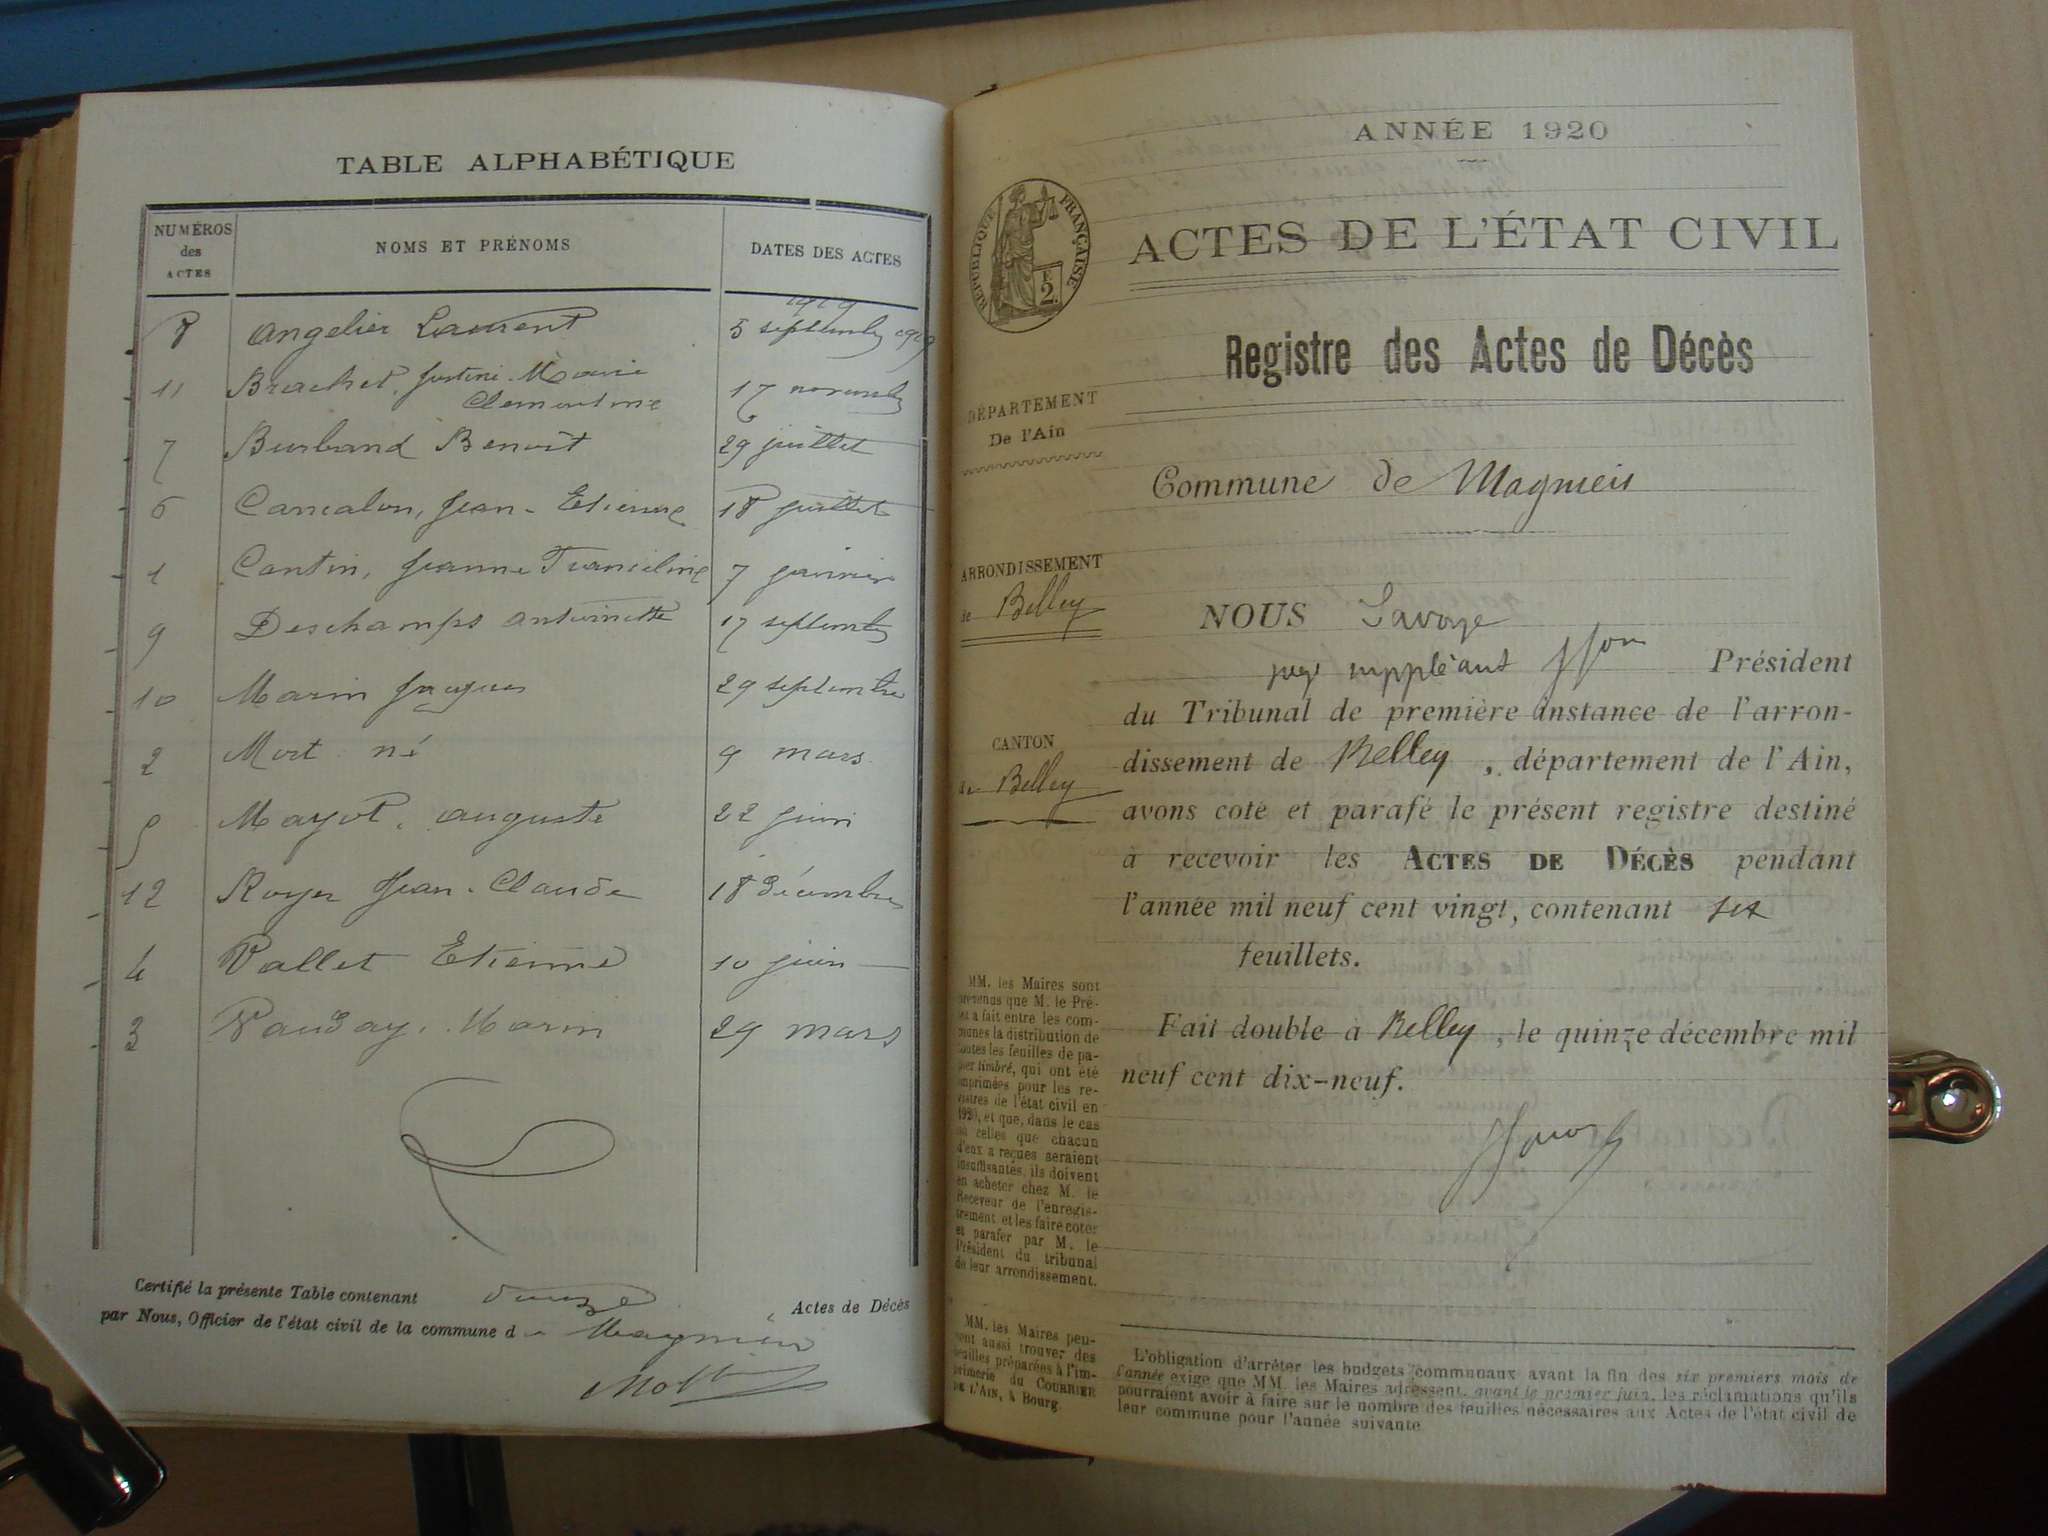 TABLE ALPHABÉTIQUE
NUMÉROS des ACTES NOMS ET PRÉNOMS DATES DES ACTES
1919
8 Angelier Laurent 5 septembre 1919
11 Brachet, Justine Marie
Clementine 17 novembre
7 Burband Benoît 29 juillet
6 Cancalon, Jean-Etienne 18 juillet
1 Cantin, Jeanne Franceline 7 janvier
9 Deschamps Antoinette 17 septembre
10 Marin Jacques 29 septembre
2 Mort né 9 mars
5 Mayot, Auguste 22 juin
12 Royer Jean-Claude 18 décembre
4 Vallet Etienne 10 juin
3 Vauday, Marin 29 mars
Certifié la présente Table contenant douze Actes de Décès
par Nous, Officier de l'état civil de la commune de Magnieu
ANNÉE 1920
RÉPUBLIQUE FRANÇAISE
F.
2.
ACTES DE L'ÉTAT CIVIL
Registre des Actes de Décès
DÉPARTEMENT
De l'Ain
Commune de Magnieu
ARRONDISSEMENT
de Belley
NOUS Savoye
juge suppléant Président
du Tribunal de première instance de l'arron-
CANTON
de Belley
dissement de Belley, département de l'Ain,
avons coté et parafé le présent registre destiné
à recevoir les ACTES DE DÉCÈS pendant
l'année mil neuf cent vingt, contenant six
feuillets.
Fait double à Belley, le quinze décembre mil
neuf cent dix-neuf.
MM. les Maires sont
prévenus que M. le Pré-
fet a fait entre les com-
munes la distribution de
toutes les feuilles de pa-
pier timbré, qui ont été
imprimées pour les re-
gistres de l'état civil en
1920, et que, dans le cas
où celles que chacun
d'eux a reçues seraient
insuffisantes, ils doivent
en acheter chez M. le
Receveur de l'enregis-
trement et les faire coter
et parafer par M. le
Président du tribunal
de leur arrondissement.
MM. les Maires peu-
vent aussi trouver des
feuilles préparées à l'im-
primerie du COURRIER
DE L'AIN, à Bourg.
L'obligation d'arrêter les budgets communaux avant la fin des six premiers mois de
l'année exige que MM. les Maires adressent, avant le premier juin, les réclamations qu'ils
pourraient avoir à faire sur le nombre des feuilles nécessaires aux Actes de l'état civil de
leur commune pour l'année suivante